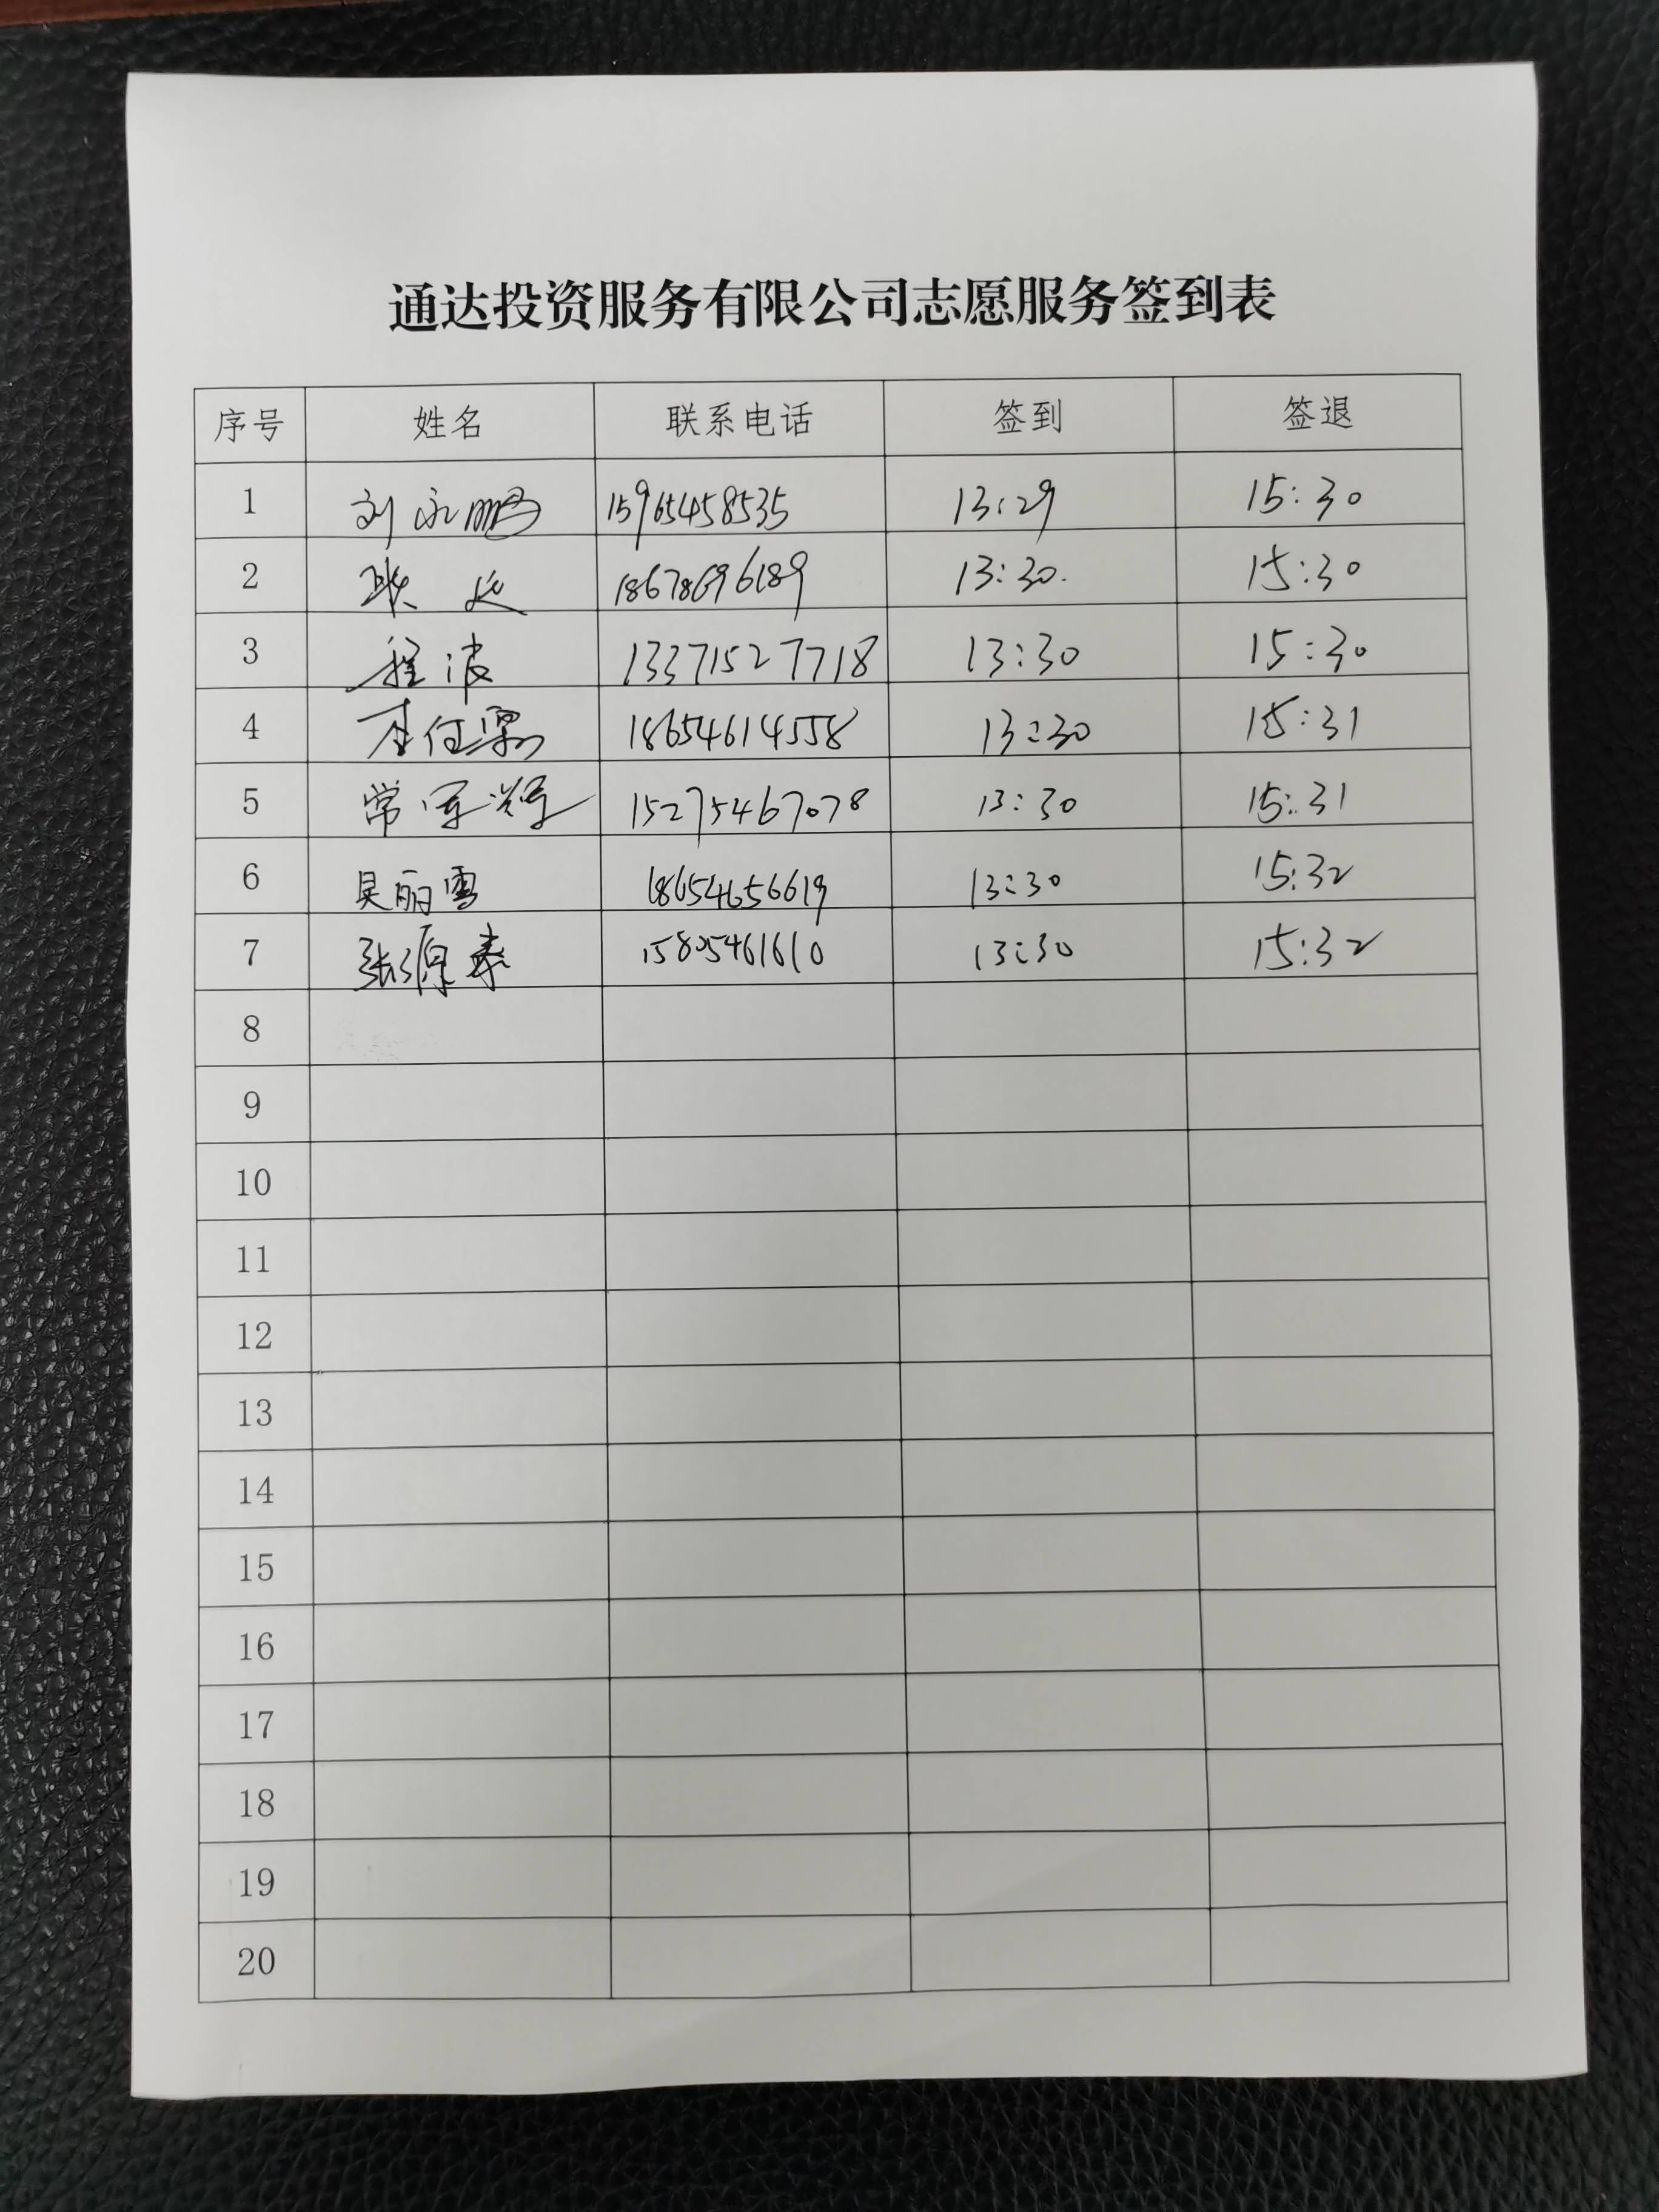 通达投资服务有限公司志愿服务签到表
序号 姓名 联系电话 签到 签退
1 刘永鹏 15965458535 13:29 15:30
2 18678696189 13:30. 15:30
3 程波 13371527718 13:30 15:30
4 李任梁 18654614558 13:30 15:31
5 常军辉 15275467078 13:30 15:31
6 吴丽雪 18654656619 13:30 15:32
7 张源泰 15805461610 13:30 15:32
8
9
10
11
12
13
14
15
16
17
18
19
20